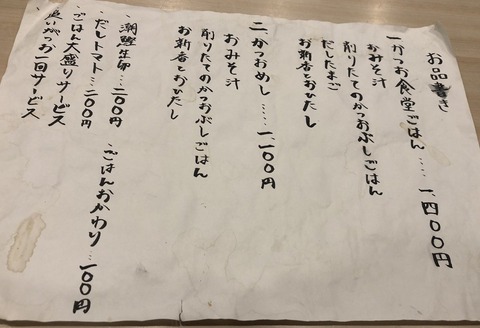 お品書き
一 かつお食堂ごはん…… 一、四〇〇円
おみそ汁
削りたてのかつおぶしごはん
だしたまご
お新香とおひたし
二 かつおめし…… 一、一〇〇円
おみそ汁
削りたてのかつおぶしごはん
お新香とおひたし
・潮鰹生卵…二〇〇円
・だしトマト…二〇〇円
・ごはんおかわり…一〇〇円
・ごはん大盛りサービス
・追いがつお一回サービス